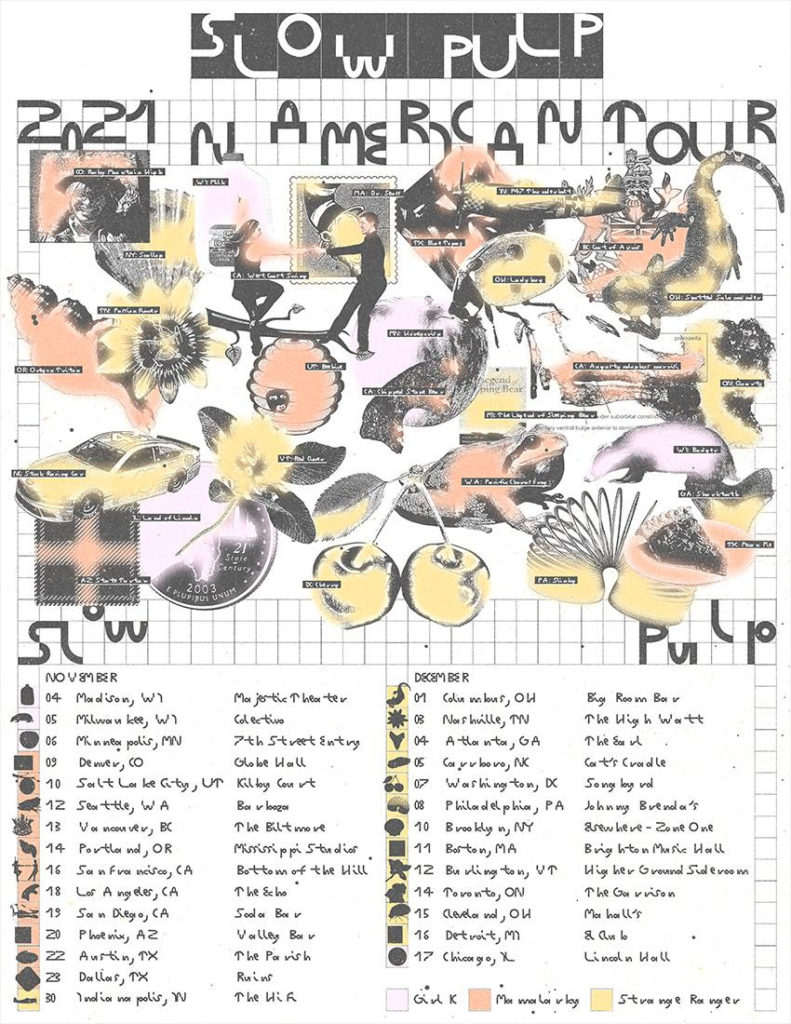 SLOW PULP
2021 N AMERICAN TOUR
CO: Rocky Mountain High
WI: Milk
MA: Dr. Seuss
IN: P47 Thunderbolt
NY: Scallop
TX: Blue Topaz
BC: Coat of Arms
CA: West Coast Swing
OH: Ladybug
OH: Spotted Salamander
TN: Passion Flower
MN: Honeycrisp
OR: Oregon Triton
UT: Beehive
CA:
ON: Quartz
CA:
Legend
Sleeping Bear
MI: The Legend of Sleeping Bear
NC: Stock Racing Car
VT: Red Clover
WA: Pacific Chorus Frog
WI: Badger
GA: Shark tooth
IL: Land of Lincoln
21
State
Century
2003
E PLURIBUS UNUM
AZ: State Tartan
DC: Cherry
PA: Slinky
TX: Pecan Pie
Slow Pulp
NOVEMBER
04 Madison, WI Majestic Theater
05 Milwaukee, WI Colectivo
06 Minneapolis, MN 7th Street Entry
09 Denver, CO Globe Hall
10 Salt Lake City, UT Kilby Court
12 Seattle, WA Barboza
13 Vancouver, BC The Biltmore
14 Portland, OR Mississippi Studios
16 San francisco, CA Bottom of the Hill
18 Los Angeles, CA The Echo
19 San Diego, CA Soda Bar
20 Phoenix, AZ Valley Bar
22 Austin, TX The Parish
23 Dallas, TX Ruins
30 Indianapolis, IN The Hi Fi
DECEMBER
01 Columbus, OH Big Room Bar
03 Nashville, TN The High Watt
04 Atlanta, GA The Earl
05 Carrboro, NC Cat's Cradle
07 Washington, DC Songbyrd
08 Philadelphia, PA Johnny Brenda's
10 Brooklyn, NY Elsewhere - Zone One
11 Boston, MA Brighton Music Hall
12 Burlington, VT Higher Ground Sideroom
14 Toronto, ON The Garrison
15 Cleveland, OH Mahall's
16 Detroit, MI El Club
17 Chicago, IL Lincoln Hall
Girl K Mannalarky Strange Ranger